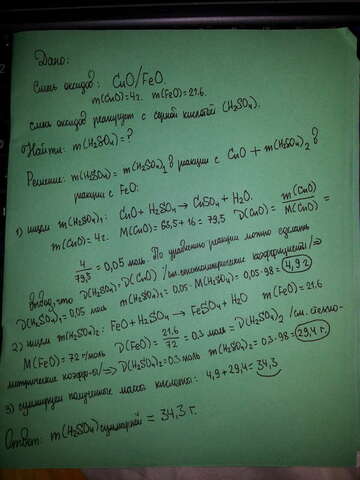 Дано:
смесь оксидов: CuO/FeO.
m(CuO)=4г. m(FeO)=21.6.
смесь оксидов реагирует с серной кислотой (H₂SO₄).
Найти: m(H₂SO₄)=?
Решение: m(H₂SO₄)=m(H₂SO₄)₁ в реакции с CuO + m(H₂SO₄)₂ в
реакции с FeO:
1) ищем m(H₂SO₄)₁: CuO + H₂SO₄ → CuSO₄ + H₂O.
m(CuO)=4г. M(CuO)=63,5+16=79,5 D(CuO)=m(CuO)/M(CuO)=
4/79,5=0,05 моль. По уравнению реакции можно сделать
вывод, что D(H₂SO₄)₁=D(CuO) /см.стехиометрические коэффициенты/ ⇒
D(H₂SO₄)₁=0,05 моль m(H₂SO₄)₁=0,05·M(H₂SO₄)=0,05·98=4,9г
2) ищем m(H₂SO₄)₂: FeO+H₂SO₄ → FeSO₄+H₂O m(FeO)=21.6
M(FeO)=72 г/моль D(FeO)=21.6/72=0.3 моль = D(H₂SO₄)₂ /см. стехио-
метрические коэфф-ты/ ⇒ D(H₂SO₄)₂=0.3 моль m(H₂SO₄)₂=0.3·98=29,4г.
3) суммируем полученные массы кислоты: 4,9+29,4=34,3
Ответ: m(H₂SO₄)суммарной = 34,3 г.